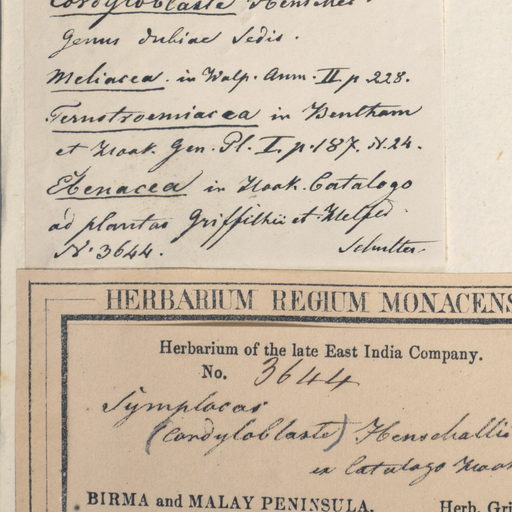 Cordyloblaste Henschel.
Genus dubiae Sedis.
Meliacea. in Walp. Ann. II p. 228.
Ternstroemiacea in Bentham
et Hook. Gen. Pl. I. p. 187. N. 24.
Ebenacea in Hook. Catalogo
ad plantas Griffithii et Helfed.
N. 3644. Schulter
HERBARIUM REGIUM MONACENS
Herbarium of the late East India Company.
No. 3644
Symplocas
(Cordyloblaste) Henschalli
ex Catalogo Hook
BIRMA and MALAY PENINSULA. Herb. Gri